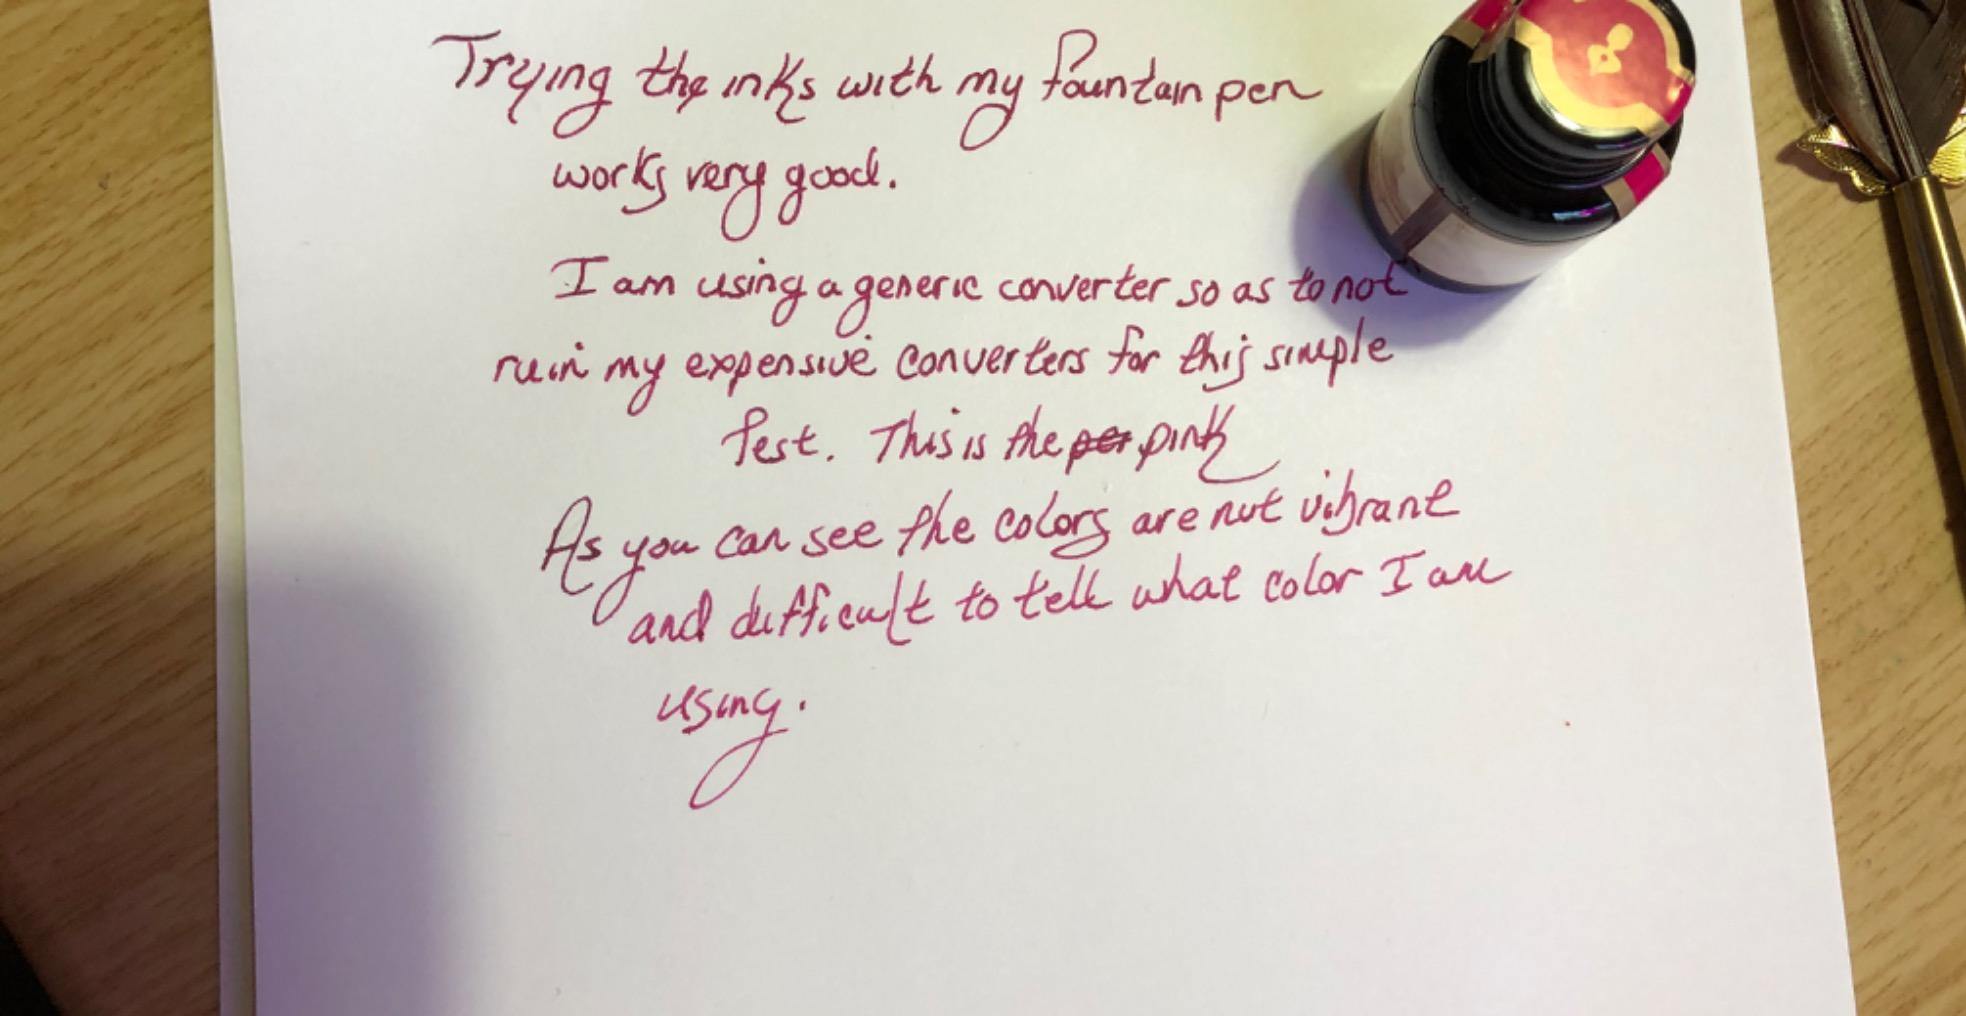 Trying the inks with my fountain pen
works very good.
I am using a generic converter so as to not
ruin my expensive converters for this simple
test. This is the per pink
As you can see the colors are not vibrant
and difficult to tell what color I am
using.